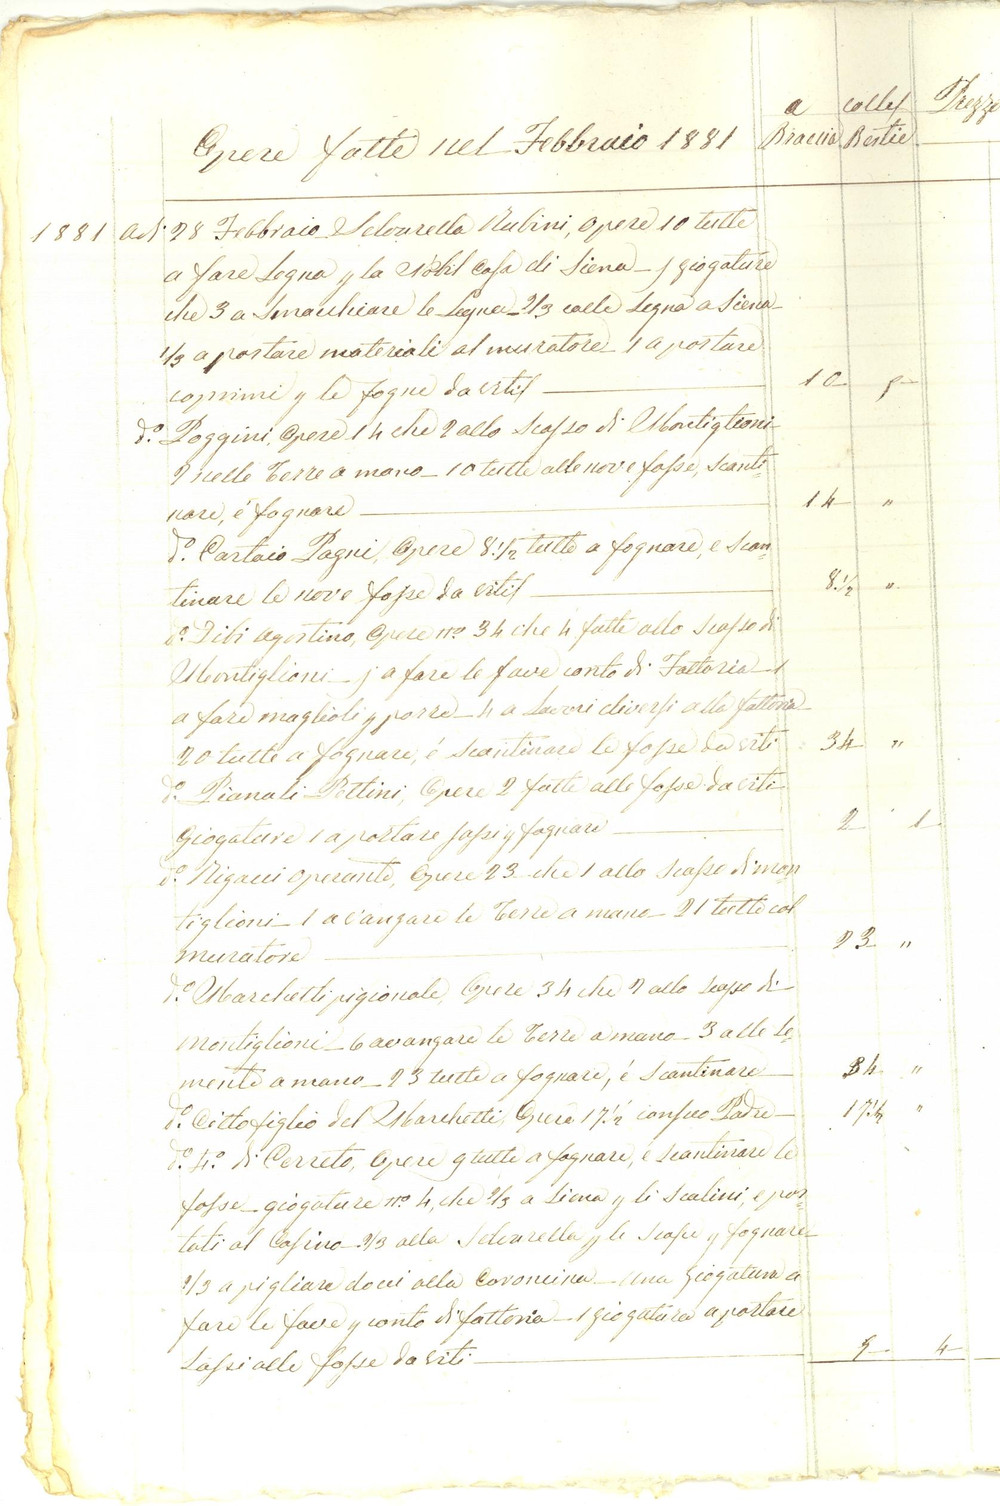 a colle Prezzo
Opere fatte nel Febbraio 1881 Braccia Bestie
1881 Adì 28 Febbraio Selvarella Rubini, Opere 10 tutte
a fare Legna y la Nobil Casa di Siena _ 5 giogature
che 3 a smacchiare le Legna _ 2/3 colle Legna a Siena _
1/3 a portare materiali al muratore _ 1 a portare
y le fogne da viti 10 5
d.o Poggini, Opere 14 che 2 allo scasso di Montiglioni _
2 nelle Terre a mano _ 10 tutte alle nove fosse, scanti=
nare, é fognare 14 "
d.o Cartaio Pagni, Opere 8.1/2 tutte a fognare, e scan=
tinare le nove fosse da viti 8.1/2 "
d.o Bibi Agostino, Opere n.o 34 che 4 fatte allo scasso di
Montiglioni _ 5 a fare le fave conto di Fattoria _ 1
a fare maglioli y porre _ 4 a Lavori diversi alla fattoria _
20 tutte a fognare, é scantinare le fosse da viti 34 "
d.o Pianali Pettini, Opere 2 fatte alle fosse da viti _
Giogature 1 a portare sassi y fognare 2 1
d.o Rigacci operante, Opere 23 che 1 allo scasso di mon=
tiglioni _ 1 a vangare le Terre a mano _ 21 tutte col
muratore 23 "
d.o Marchetti pigionale, Opere 34 che 2 allo scasso di
Montiglioni _ 6 a vangare le Terre a mano _ 3 alle se=
mente a mano _ 23 tutte a fognare, é scantinare 34 "
d.o Citto figlio del Marchetti, Opere 17.1/2 con suo Padre _ 17.1/2 "
d.o P.o di Cerreto, Opere 9 tutte a fognare, é scantinare le
fosse _ giogature n.o 4, che 2/3 a Siena y li Scalini, e por=
tati al Casino _ 2/3 alla Selvarella y le scope y fognare _
2/3 a pigliare docci alla Coroncina _ una giogatura a
fare le fave y conto di fattoria _ 1 giogatura a portare
Sassi alle fosse da viti 9 4